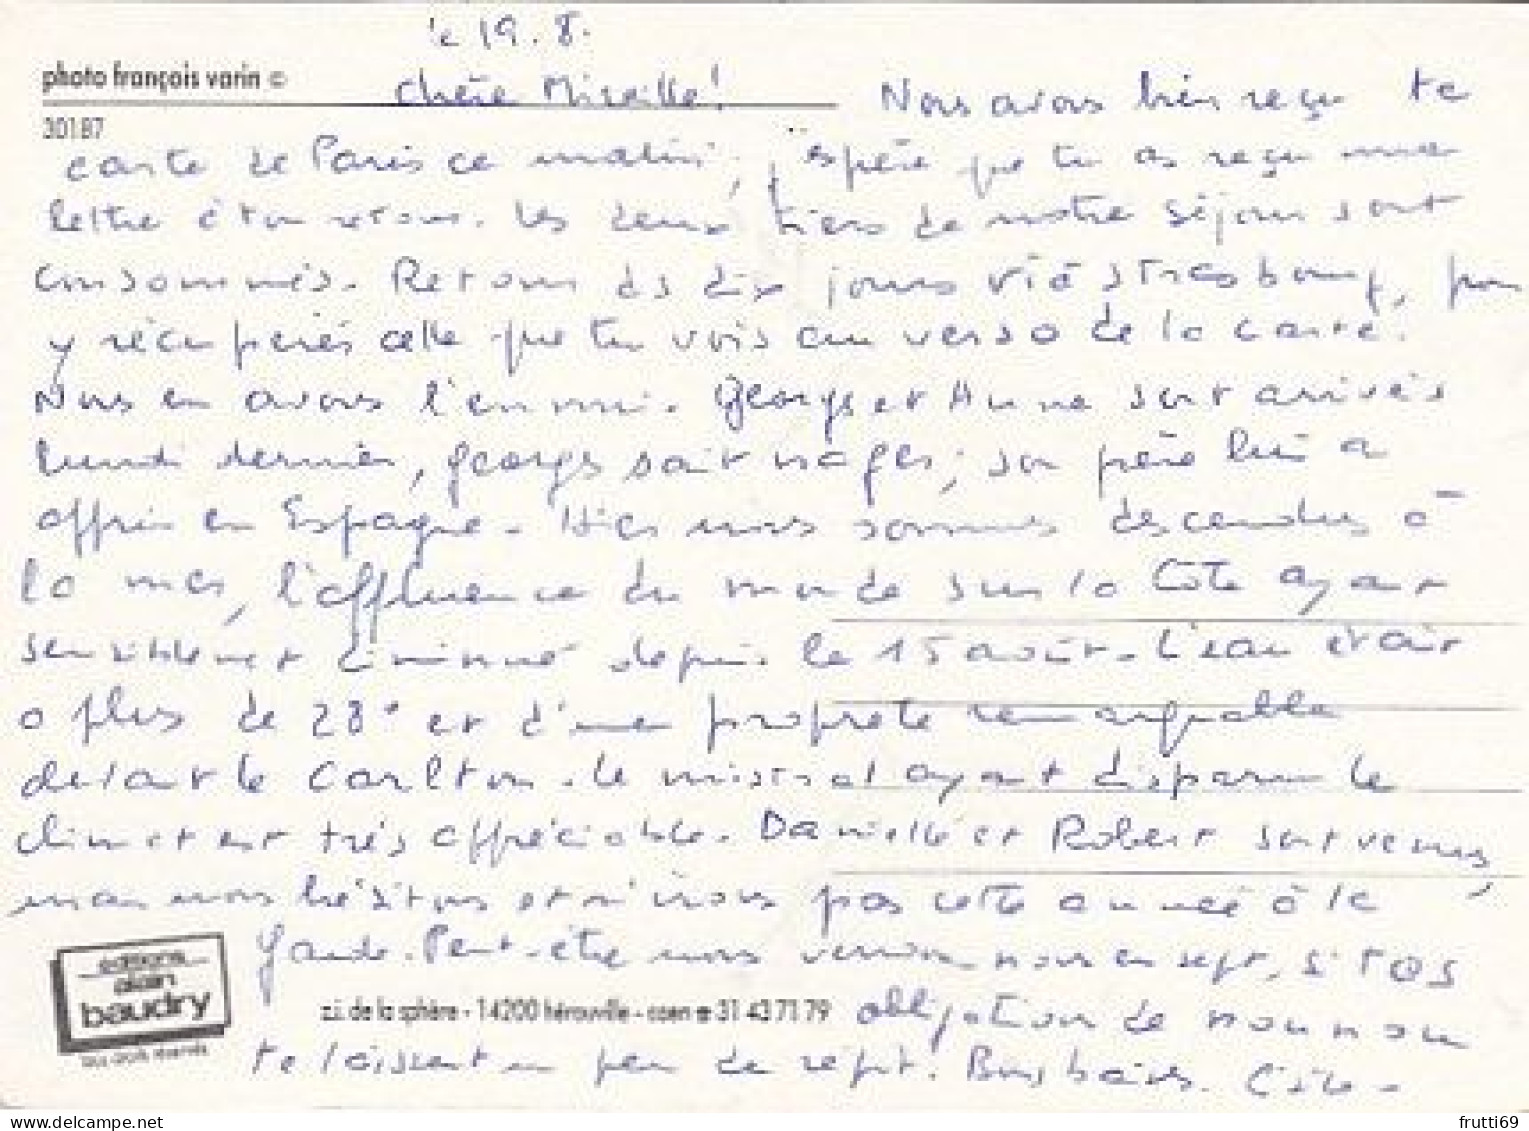 le 19.8.
photo françois varin ©
Chère Mireille! Nous avons bien reçu ta
30187
carte de Paris ce matin, j'espère que tu as reçu ma
lettre à ton retour. Les deux tiers de notre séjour sont
consommés. Retour ds dix jours via Strasbourg, pour
y récupérer celle que tu vois au verso de la carte.
Nous en avons l'ennui. Georges et Anne sont arrivés
lundi dernier, Georges sait nager, son père lui a
appris en Espagne. Hier nous sommes descendus à
la mer, l'affluence du monde sur la Côte ayant
sensiblement diminué depuis le 15 août. L'eau était
à plus de 28° et d'une propreté remarquable
devant le Carlton. Le mistral ayant disparu le
climat est très appréciable. Danielle et Robert sont venus,
mais nous hésitons et n'irons pas cette année à la
Gaude. Peut-être nous verrons nous en sept. si tes
editions
alain
baudry
z.i. de la sphère - 14200 hérouville - caen ☎ 31 43 71 79
obligations de
tous droits réservés
te laissent un peu de répit. Bons baisers.
frutti69